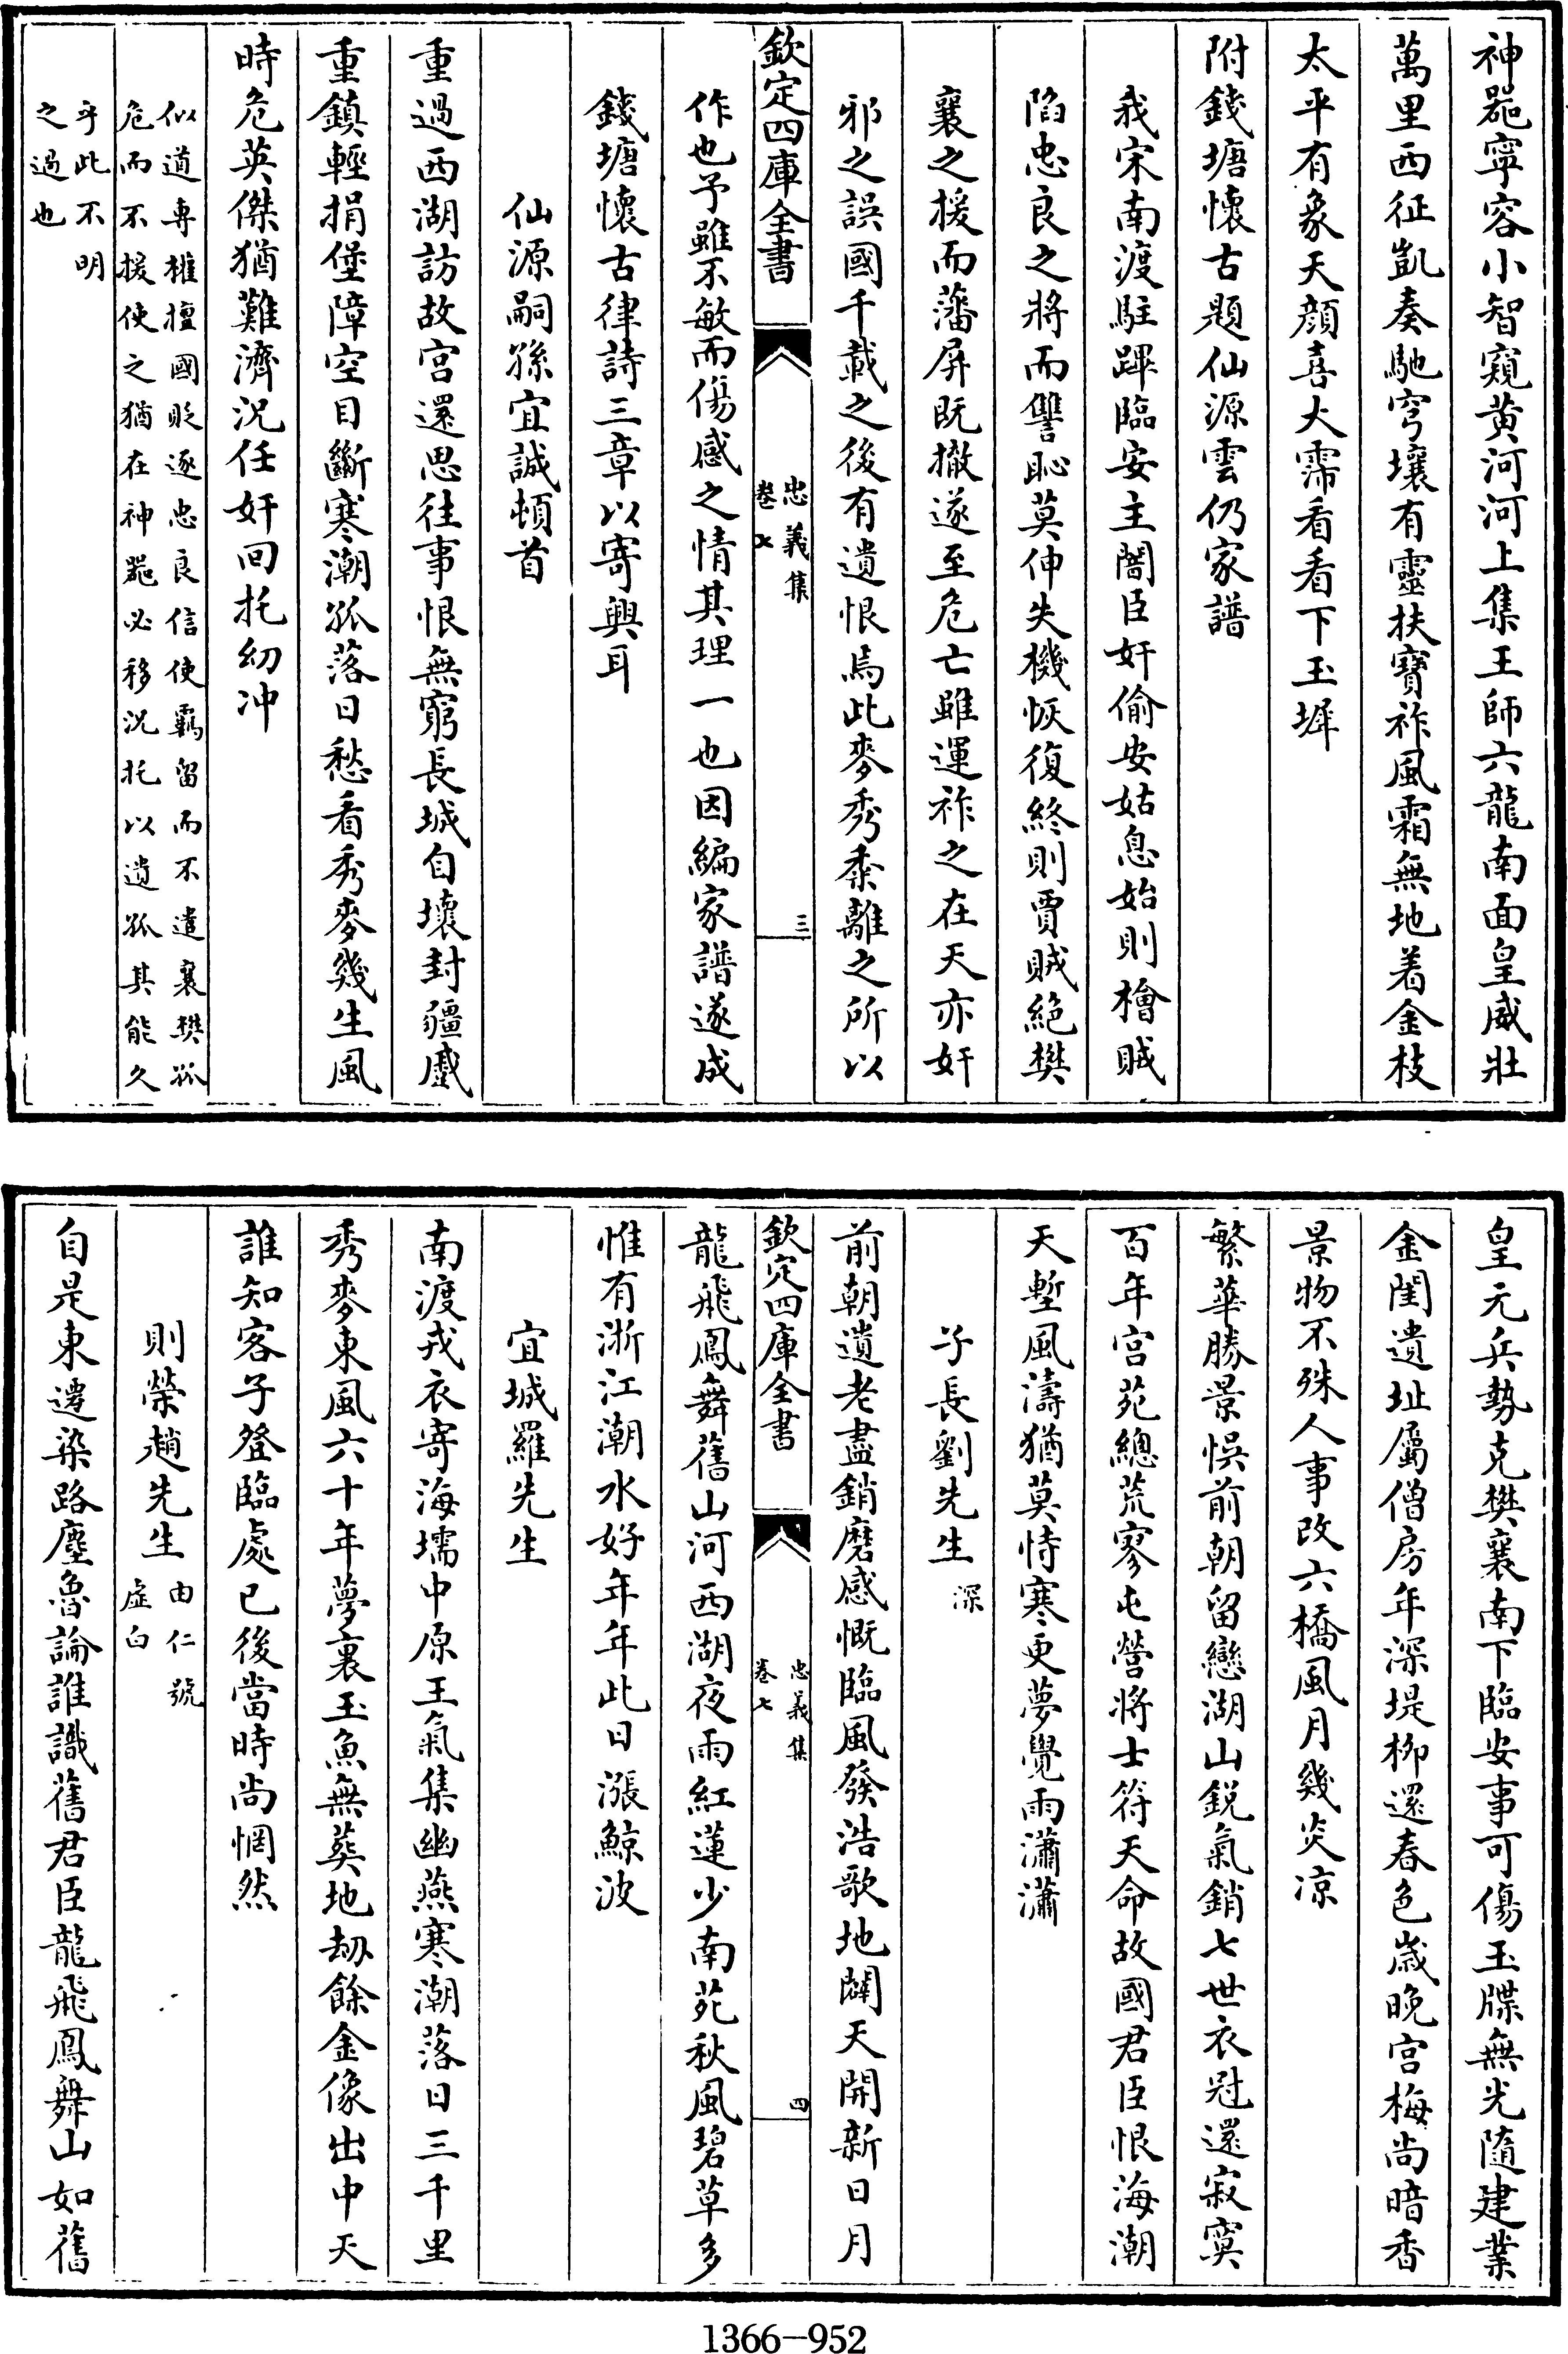 神器寧容小智窺黄河河上集王師六龍南面皇威壯
萬里西征凱奏馳穹壤有靈扶寶祚風霜無地着金枝
太平有象天顔喜大霈看看下玉墀
附錢塘懷古題仙源雲仍家譜
我宋南渡駐蹕臨安主闇臣奸偷安姑息始則檜賊
陷忠良之將而讐恥莫伸失機恢復終則賈賊絶樊
襄之援而藩屏既撤遂至危亡雖運祚之在天亦奸
邪之誤國千載之後有遺恨焉此麥秀黍離之所以
欽定四庫全書
忠義集
卷七
三
作也予雖不敏而傷感之情其理一也因編家譜遂成
錢塘懷古律詩三章以寄興耳
仙源嗣孫宜誠頓首
重過西湖訪故宫還思往事恨無窮長城自壞封疆蹙
重鎮輕捐堡障空目斷寒潮孤落日愁看秀麥幾生風
時危英傑猶難濟況任奸回托幼冲
似道専權擅國貶逐忠良信使羈留而不遣襄樊孤
危而不援使之猶在神器必移況托以遺孤其能久
乎此不明
之過也
皇元兵勢克樊襄南下臨安事可傷玉牒無光隨建業
金閨遺址屬僧房年深堤柳還春色嵗晚宫梅尚暗香
景物不殊人事改六橋風月幾炎凉
繁華勝景悞前朝留戀湖山鋭氣銷七世衣冠還寂寞
百年宫苑總荒寥屯營將士符天命故國君臣恨海潮
天塹風濤猶莫恃寒更夢覺雨瀟瀟
子長劉先生深
前朝遺老盡銷磨感慨臨風發浩歌地闢天開新日月
欽定四庫全書
忠義集
卷七
四
龍飛鳳舞舊山河西湖夜雨紅蓮少南苑秋風碧草多
惟有浙江潮水好年年此日漲鯨波
宜城羅先生
南渡戎衣寄海壖中原王氣集幽燕寒潮落日三千里
秀麥東風六十年夢裏玉魚無葬地刼餘金像出中天
誰知客子登臨處已後當時尚惘然
則榮趙先生由仁號
虚白
自是東遷染路塵魯論誰識舊君臣龍飛鳳舞山如舊
1366-952